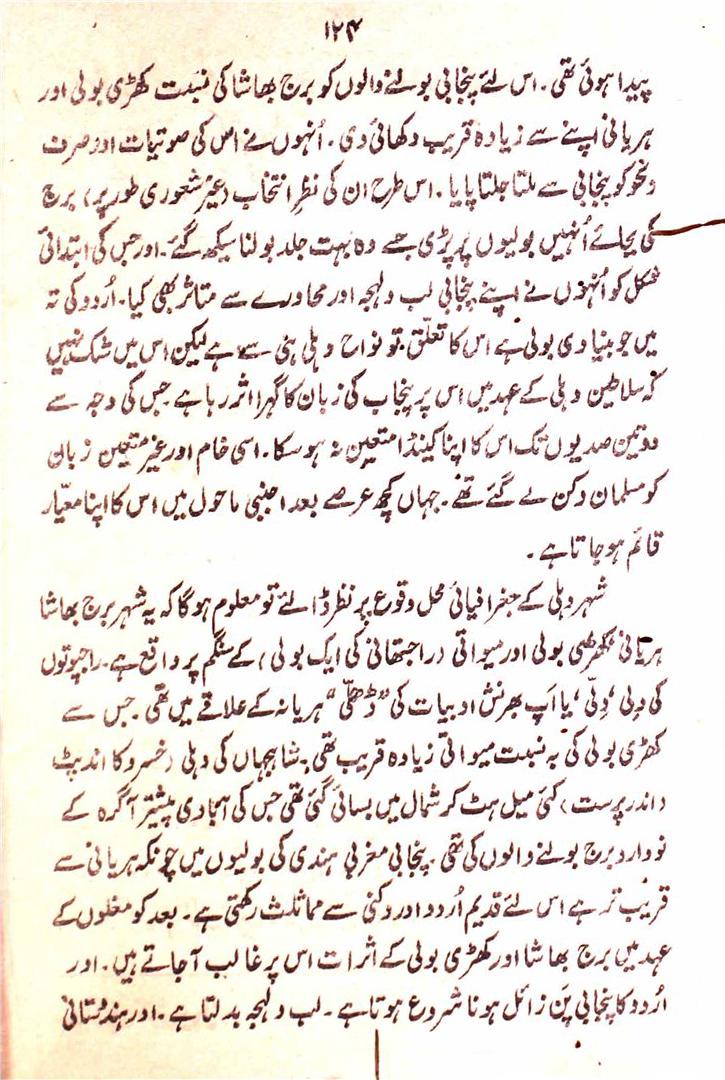 ۱۲۴
پیدا ہوئی تھی۔ اس لئے پنجابی بولنے والوں کو برج بھاشا کی نسبت کھڑی بولی اور
ہریانی اپنے سے زیادہ قریب دکھائی دی۔ اُنہوں نے اس کی صوتیات اور صرف
ونحو کو پنجابی سے ملتا جلتا پایا۔ اس طرح ان کی نظرِ انتخاب (غیر شعوری طور پر) برج
کی بجائے اُنہیں بولیوں پر پڑی جسے وہ بہت جلد بولنا سیکھ گئے۔ اور جس کی ابتدائی
شکل کو اُنہوں نے اپنے پنجابی لب ولہجہ اور محاورے سے متاثر بھی کیا۔ اُردو کی تہ
میں جو بنیادی بولی ہے اس کا تعلّق تو نواحِ دہلی ہی سے ہے لیکن اس میں شک نہیں
کہ سلاطین دہلی کے عہد میں اس پر پنجاب کی زبان کا گہرا اثر رہا ہے جس کی وجہ سے
دو تین صدیوں تک اس کا اپنا کینڈا متعین نہ ہو سکا۔ اسی خام اور غیر متعین زبان
کو مسلمان دکن لے گئے تھے۔ جہاں کچھ عرصے بعد اجنبی ماحول میں اس کا اپنا معیّار
قائم ہو جاتا ہے۔
شہر دہلی کے جغرافیائی محل وقوع پر نظر ڈالئے تو معلوم ہوگا کہ یہ شہر برج بھاشا
ہریانی، کھڑی بولی اور میواتی (راجتھانی کی ایک بولی) کے سنگم پر واقع ہے۔ راجپوتوں
کی دِلی، دِلّی، یا اَپ بھرنش ادبیات کی ”ڈھلّی“ ہریانہ کے علاقے میں تھی۔ جس سے
کھڑی بولی کی بہ نسبت میواتی زیادہ قریب تھی۔ شاہجہاں کی دہلی (خسرو کا اندپٹ
(اندر پرست) کئی میل ہٹ کر شمال میں بسائی گئی تھی جس کی آبادی پیشتر آگرہ کے
نووارد برج بولنے والوں کی تھی۔ پنجابی مغربی ہندی کی بولیوں میں چونکہ ہریانی سے
قریب تر ہے اس لئے قدیم اُردو اور دکنی سے مماثلث رکھتی ہے۔ بعد کو مغلوں کے
عہد میں برج بھاشا اور کھڑی بولی کے اثرات اس پر غالب آجاتے ہیں۔ اور
اُردو کا پنجابی پَن زائل ہونا شروع ہوتا ہے۔ لب ولہجہ بدلتا ہے۔ اور ہندستانی